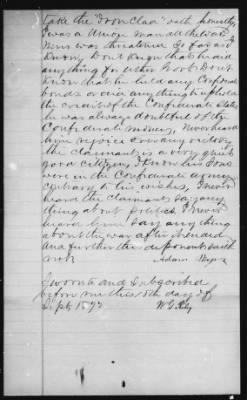 take the "Iron Clad" oath honestly
I was a Union man all the war I
never was threatened so far as I
know, Don't know that he said
anything for either side Dont
know that he held any Confederate
bonds or did anything to uphold
the credit of the Confederate States
he was always doubtful of the
Confederate money, never heard
him rejoice over any victory
the claimant is a very quiet
good citizen, I know his sons
were in the Confederate army
contrary to his wishes, I never
heard the claimant say any
thing about politics I never
heard him say anything
about the war after it ended
and further the deponent saith
not. Adam
Sworn to and subscribed
before me this 8th day of
Sept. 1873